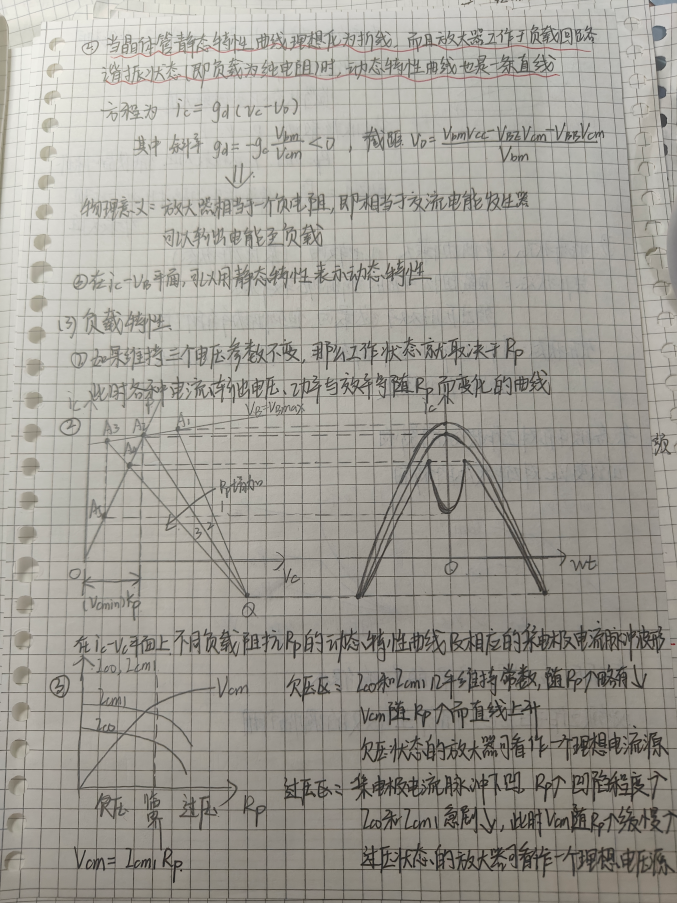 ④ 当晶体管静态特性曲线理想化为折线,而且放大器工作于负载回路
谐振状态(即负载为纯电阻)时,动态特性曲线也是一条直线
方程为 ic = gd(vc-V0)
其中斜率 gd = -gc Vbm/Vcm < 0 , 截距 V0 = (VbmVcc-VBZVcm-VBBVcm)/Vbm
⇓
物理意义:放大器相当于一个负电阻,即相当于交流电能发生器
可以输出电能至负载
⑤ 在ic-VB平面,可以用静态特性表示动态特性
(3) 负载特性
① 如果维持三个电压参数不变,那么工作状态就取决于Rp
此时各种电流、输出电压、功率与效率等随Rp而变化的曲线
②
ic
A3 A2 A1 VB=VBmax
ic
A4
Rp增加
A5
3 2 1
O
Vc
O
wt
(Vcmin)Kp
Q
在ic-Vc平面上,不同负载阻抗Rp的动态特性曲线及相应的集电极电流脉冲波形
③
Ic0, Icm1
Vcm
Icm1
Ic0
欠压 临界 过压 Rp
Vcm = Icm1 Rp
欠压区: Ic0和Icm1几乎维持常数,随Rp↑略有↓
Vcm随Rp↑而直线上升
欠压状态的放大器可看作一个理想电流源
过压区: 集电极电流脉冲下凹 Rp↑ 凹陷程度↑
Ic0和Icm1急剧↓,此时Vcm随Rp↑缓慢↑
过压状态的放大器可看作一个理想电压源